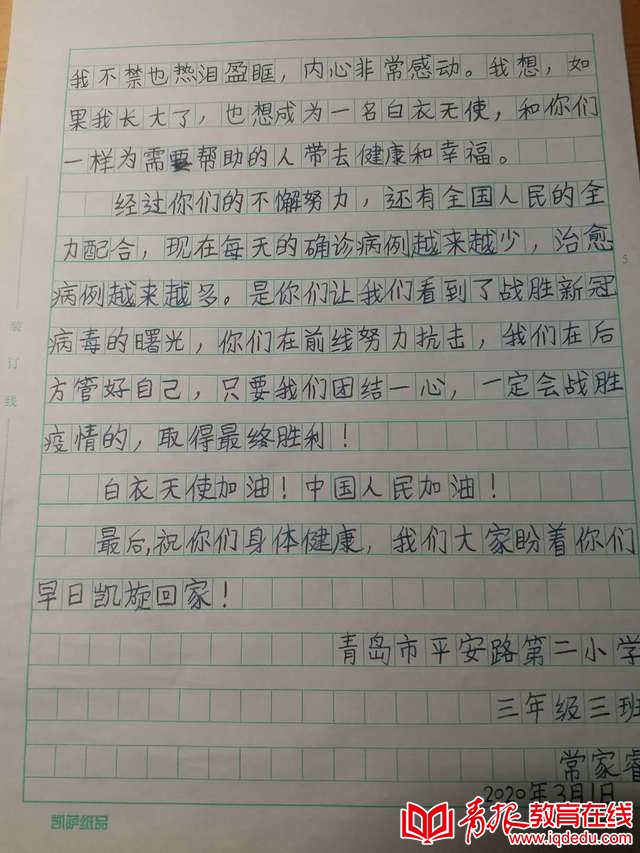 我不禁也热泪盈眶，内心非常感动。我想，如
果我长大了，也想成为一名白衣天使，和你们
一样为需要帮助的人带去健康和幸福。
经过你们的不懈努力，还有全国人民的全
力配合，现在每天的确诊病例越来越少，治愈
病例越来越多。是你们让我们看到了战胜新冠
病毒的曙光，你们在前线努力抗击，我们在后
方管好自己，只要我们团结一心，一定会战胜
疫情的，取得最终胜利！
白衣天使加油！中国人民加油！
最后,祝你们身体健康，我们大家盼着你们
早日凯旋回家！
青岛市平安路第二小学
三年级三班
常家睿
2020年3月1日
装订线
5
凯萨纸品
青报教育在线
www.iqdedu.com